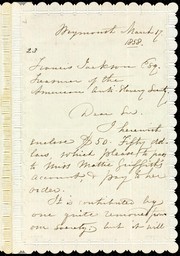 Weymouth March 17
1858.
23
Francis Jackson Esq.
Treasurer of the
American Anti Slavery Society
Dear Sir.
I herewith
enclose $50. Fifty dol
lars, which please to pay
to Miss Mattie Griffith's
account, & pay to her
order.
It is contributed by
one quite removed from
our society but it will